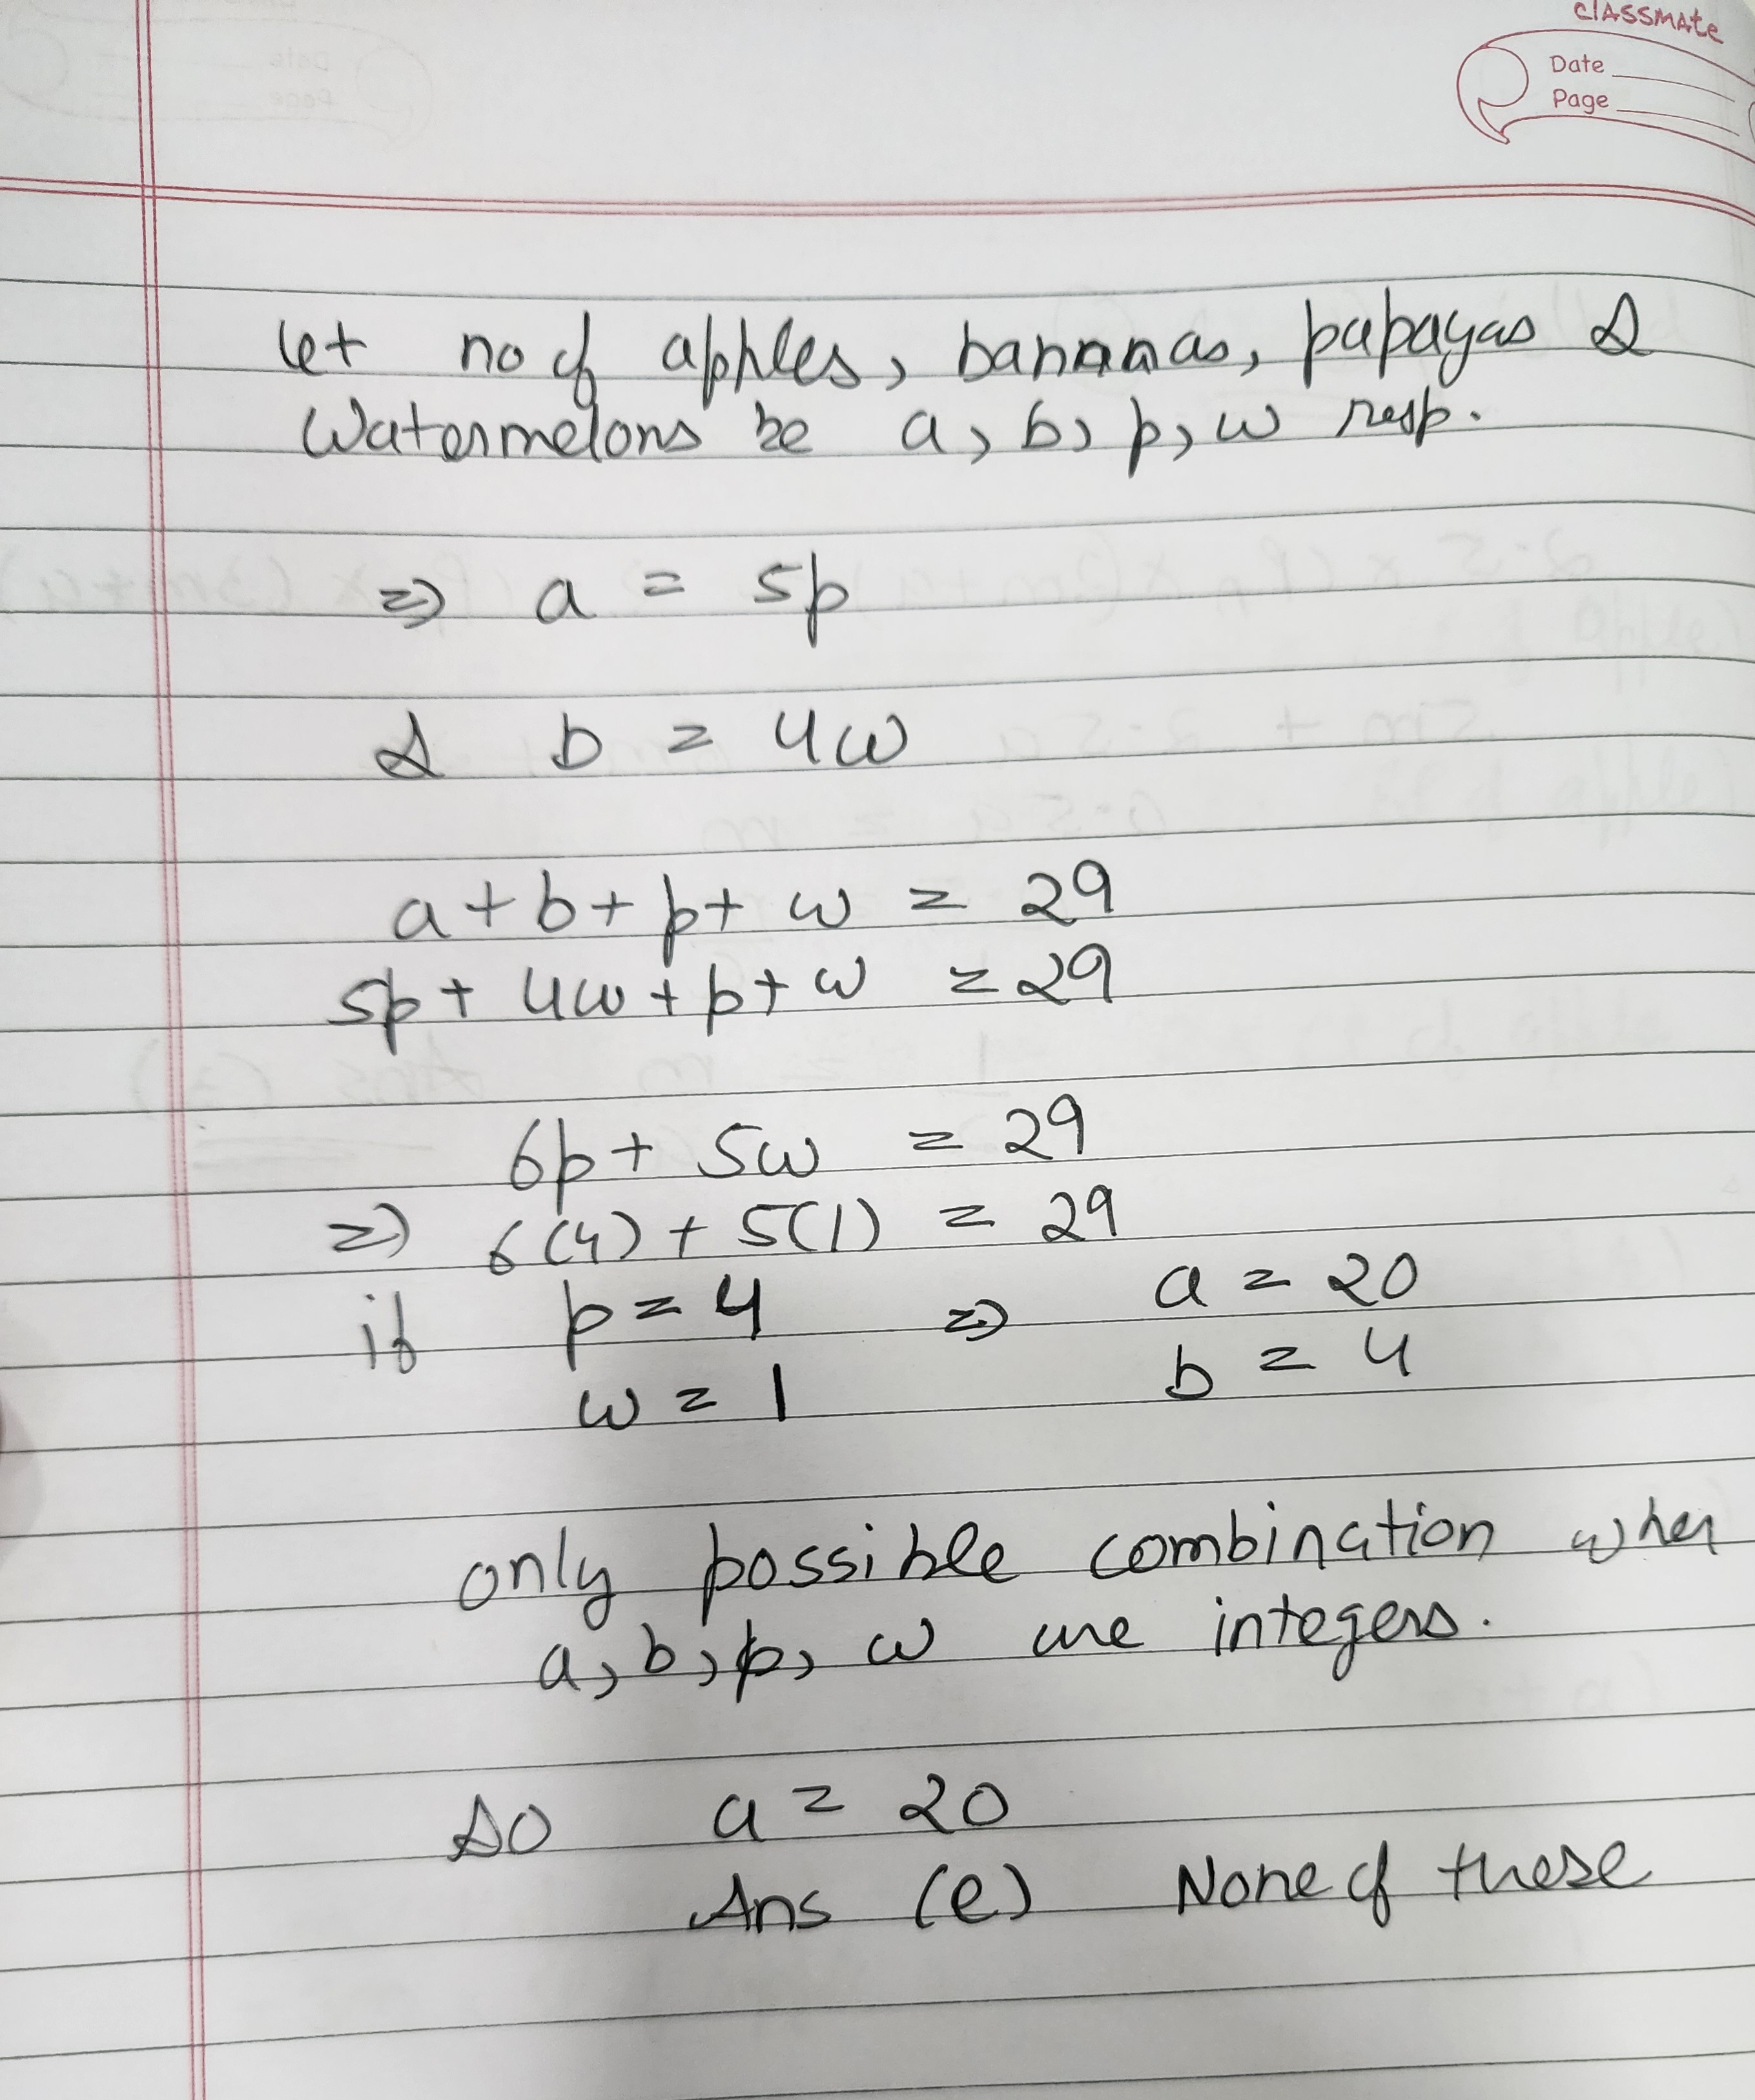 classmate
Date
Page
let no of apples, bananas, papayas &
Watermelons be a, b, p, w resp.
⇒ a = 5p
& b = 4w
a + b + p + w = 29
5p + 4w + p + w = 29
6p + 5w = 29
⇒ 6(4) + 5(1) = 29
if p = 4 ⇒ a = 20
w = 1 b = 4
only possible combination when
a, b, p, w are integers.
so a = 20
Ans (e) None of these